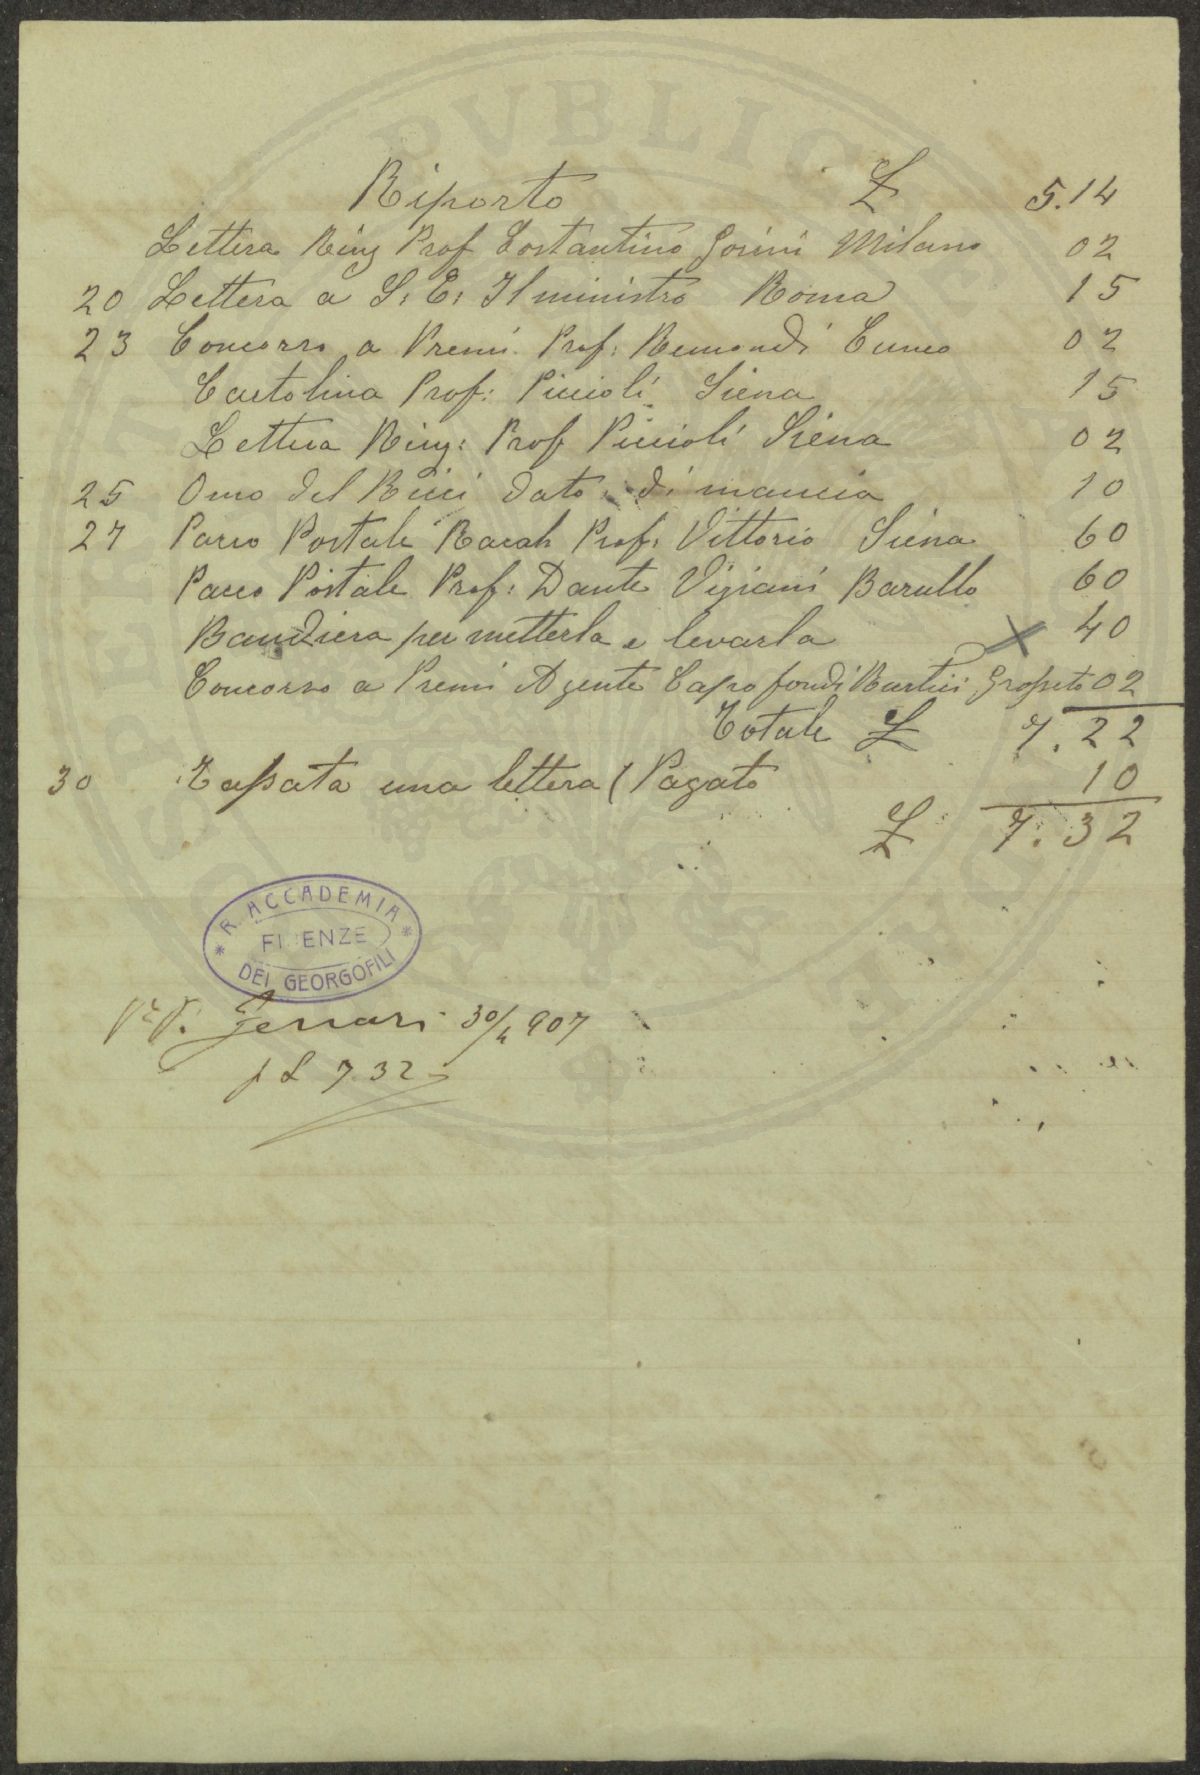 Riporto £ 5.14
Lettera Ring Prof Costantino Gorini Milano 02
20 Lettera a S: E: Il ministro Roma 15
23 Concorso a Premi Prof: Remondi Cuneo 02
Cartolina Prof: Piccioli Siena 15
Lettera Ring: Prof Piccioli Siena 02
25 Omo del Ricci dato di mancia 10
27 Pacco Postale Racah Prof: Vittorio Siena 60
Pacco Postale Prof: Dante Vigiani 60
Bandiera per metterla e levarla 40
Concorso a Premi Agente Capo fondi Grosseto 02
Totale £ 7.22
30 Tassata una lettera (Pagato 10
£ 7.32
R. ACCADEMIA
FIRENZE
DEI GEORGOFILI
Ferrari 30/4 907
p L 7.32